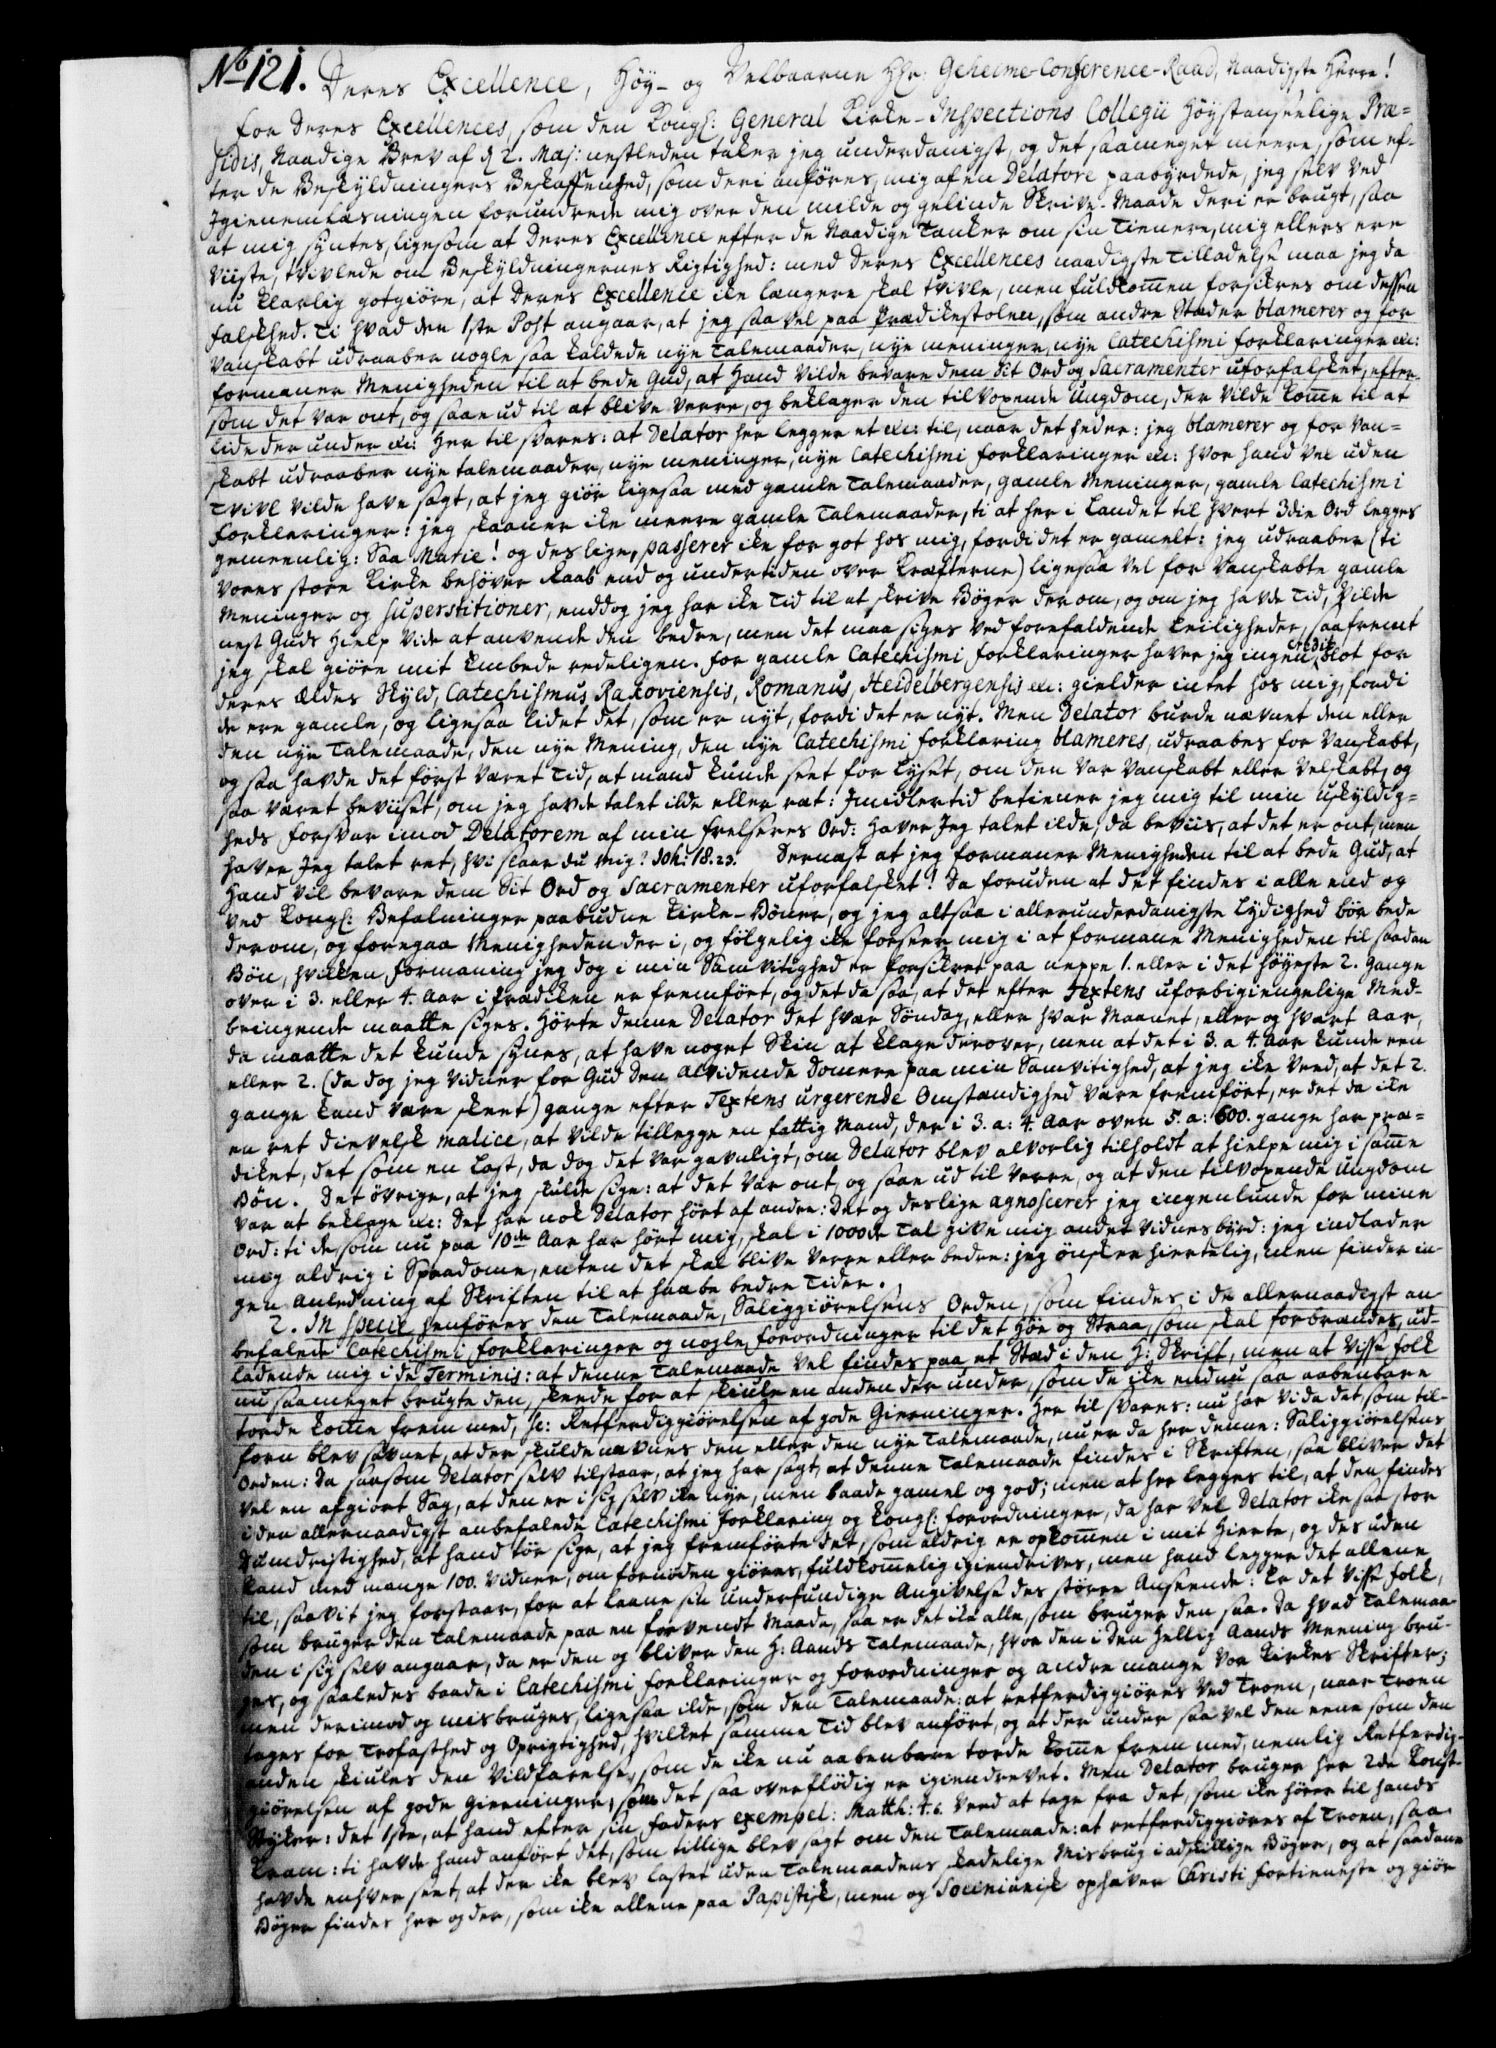 No 121. Deres Excellence, Høy- og Velbaarne Hr: Geheime-Conference-Raad, Naadigste Herre!
For Deres Excellences, som den Kongl: General Kirke-Inspections Collegii Høystanseelige Præ-
sidis, Naadige Brev af d 2. Maj: nestleden taker jeg underdanigst, og det saameget meere, som ef-
ter de Beskyldningers Beskaffenhed, som deri anføres, mig af en Delatore paabyrdede, jeg selv ved
Igiennemlæsningen forundrede mig over den milde og gelinde Skrive-Maade deri er brugt, saa
at mig syntes, ligesom at Deres Excellence efter de Naadige Tanker om sin Tienere, mig ellers ere
viiste, tvivlede om Beskyldningernes Rigtighed: med Deres Excellences naadigste Tilladelse maa jeg da
nu klarlig gotgiøre, at Deres Excellence ike længere skal tvivle, men fuldkommen forsikres om dessen
falskhed. Ti hvad den 1ste Post angaar, at jeg saa vel paa Prædikestolen, som andre Stæder blamerer og for
Vanskabt udraaber nogle saa kaldede nye Talemaader, nye meninger, nye Catechismi forklaringer etc:
formaner Menigheden til at bede Gud, at Hand vilde bevare dem Sit Ord og Sacramenter uforfalsket, efter-
som det var ont, og saae ud til at blive verre, og beklager den tilvoxende Ungdom, der vilde komme til at
lide der under etc: Her til svares: at Delator her legger et etc: til, naar det heder: jeg blamerer og for Van-
skabt udraaber nye talemaader, nye meninger, nye Catechismi forklaringer etc: hvor hand vel uden
Tvivl vilde have sagt, at jeg giør ligesaa med gamle Talemaader, gamle Meninger, gamle Catechismi
forklaringer: jeg skaaner ike meere gamle Talemaader, ti at her i Landet til hvert 3die Ord legges
gemeenlig: Saa Marie! og deslige, passerer ike for got hos mig, fordi det er gamelt: jeg udraaber (ti
vores store Kirke behøver Raab end og undertiden over Kræfterne) ligesaa vel for Vanskabte gamle
Meninger og superstitioner, enddog jeg har ike Tid til at skrive Bøger derom, og om jeg havde Tid, vilde
nest Guds Hielp vide at anvende den bedre, men det maa siges ved forefaldende Leiligheder, saafremt
jeg skal giøre mit Embede redeligen. For gamle Catechismi forklaringer haver jeg ingen credit blot for
deres Ældes Skyld, Catechismus Racoviensis, Romanus, Heidelbergensis etc: gielder intet hos mig, fordi
de ere gamle, og ligesaa lidet det, som er nyt, fordi det er nyt. Men Delator burde nævnet den eller
den nye Talemaade, den nye Mening, den nye Catechismi forklaring blameres, udraabes for Vanskabt,
og saa havde det først været Tid, at mand kunde seet for Lyset, om den var Vanskabt eller velskabt, og
saa været beviiset, om jeg havde talet ilde eller ræt: Imidlertid betiener jeg mig til min uskyldig-
heds forsvar imod Delatorem af min frelseres Ord: Haver Jeg talet ilde, da beviis, at det er ont, men
haver Jeg talet ret, hvi slaar du mig? Joh: 18.23. Dernæst at jeg formaner Menigheden til at bede Gud, at
Hand vil bevare dem Sit Ord og Sacramenter uforfalsket! Da foruden at det findes i alle end og
ved Kongl: Befalninger paabudne Kirke-Bønner, og jeg altsaa i allerunderdanigste Lydighed bør bede
derom, og foregaa Menigheden der i, og følgelig ike forseer mig i at formane Menigheden til saadan
Bøn, hvilken formaning jeg dog i min Samvitighed er forsikret paa neppe 1. eller i det høyeste 2. gange
over i 3. eller 4. Aar i Prædiken er fremført, og det da saa, at det efter Textens uforbigiengelige Med-
bringende maatte siges. Hørte denne Delator det hver Søndag, eller hver Maanet, eller og hvert Aar,
da maatte det kunde synes, at have noget Skin at klage derover, men at det i 3. a 4. Aar kunde een
eller 2. (da dog jeg vidner for Gud Den alvidende Domere paa min Samvitighed, at jeg ike veed, at det 2.
gange kand være skeet) gange efter Textens urgerende Omstændighed være fremført, er det da ike
en ret dievelsk malice, at vilde tillegge en fattig Mand, der i 3. a: 4. Aar over 5. a: 600. gange har præ-
diket, det som en Last, da dog det var gavnligt, om Delator blev alvorlig tilholdt at hielpe mig i samme
Bøn. Det øvrige, at jeg skulde sige: at det var ont, og saae ud til verre, og at den tilvoxende ungdom
var at beklage etc: Det har nok Delator hørt af andre: Det og deslige agnoscerer jeg ingenlunde for mine
Ord: ti de, som nu paa 10de Aar har hørt mig, skal i 1000de Tal give mig andet vidnesbyrd: jeg indlader
mig aldrig i Spaadome, enten det skal blive verre eller bedre: jeg ønsker hiertelig, men finder in-
gen Anledning af Skriften til at haabe bedre Tider.
2. In specie henføres den Talemaade, Saliggiørelsens Orden, som findes i de allernaadigst an-
befalede Catechismi forklaringer og nogle forordninger til det Høe og Straa, som skal forbrændes, ud-
ladende mig i de Terminis: at denne Talemaade vel findes paa et Sted i den H: Skrift, men at visse folk
nu saameget brugte den, skeede for at skiule en anden der under, som de ike endnu saa aabenbare
torde komme frem med, sc: Retferdiggiørelsen af gode Gierninger. Her til svares: nu har vi da det, som til-
forn blev savnet, at der skulde nævnes den eller den nye Talemaade, nu er da her denne: Saliggiørelsens
Orden: Da saasom Delator selv tilstaar, at jeg har sagt, at denne Talemaade findes i Skriften, saa bliver det
vel en afgiort Sag, at den er i sig selv ike nye, men baade gamel og god; men at her legges til, at den findes
i den allernaadigst anbefalede Catechismi forklaring og Kongl: forordninger, da har vel Delator ike saa stor
Dumdristighed, at hand tør sige, at jeg fremførte det, som aldrig er opkommen i mit Hierte, og des uden
kand med mange 100. vidner, om fornøden giøres, fuldkommelig igiendrives, men hand legger det allene
til, saavit jeg forstaar, for at laane sin underfundige Angivelse des større Anseende: Er det visse folk,
som bruger den Talemaade paa en forvendt Maade, saa er det ike alle, som bruger den saa. Da hvad Talemaa-
den i sig selv angaar, da er den og bliver den H: Aands Talemaade, hvor den i Den Hellig Aands Meening bru-
ges, og saaledes baade i Catechismi forklaringer og forordninger og andre mange vor Kirkes Skrifter;
men derimod og misbruges, ligesaa ilde, som den Talemaade: at retferdiggiøres ved Troen, naar Troen
tages for Trofasthed og Oprigtighed, hvilket samme Tid blev anført, og at der under saa vel den eene som den
anden skiules den Vildfarelse, som de ike nu aabenbare torde komme frem med, nemlig Retferdig-
giørelsen af gode Gierninger, som det saa overflødig er igiendrevet. Men Delator bruger her 2de Konst-
Stycker: det 1ste, at hand efter sin faders exempel: Matth: 4.6. Veed at tage fra det, som ike hører til hands
Kram: ti havde hand anført det, som tillige blev sagt om den Talemaade: at retferdiggiøres af Troen, saa
havde enhver seet, at der ike blev lastet uden Talemaadens skadelige Misbrug i adskillige Bøger, og at saadane
Bøger findes her og der, som ike allene paa Papistisk, men og Socinianisk ophæver Christi fortieneste og giør